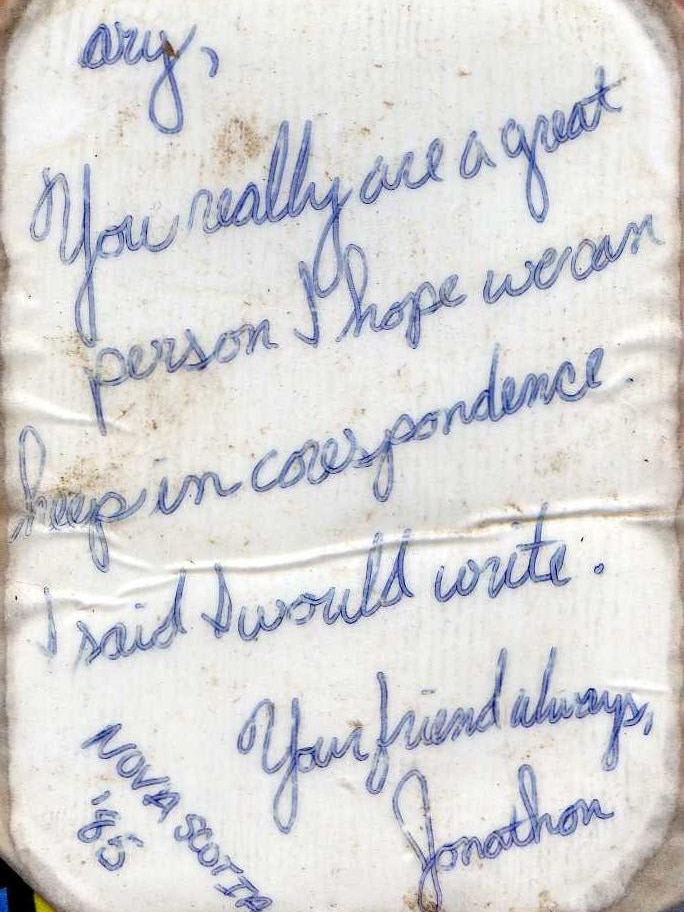 ary,
You really are a great
person I hope we can
keep in corespondence.
I said I would write.
Your friend always,
Jonathon
NOVA SCOTIA
'85